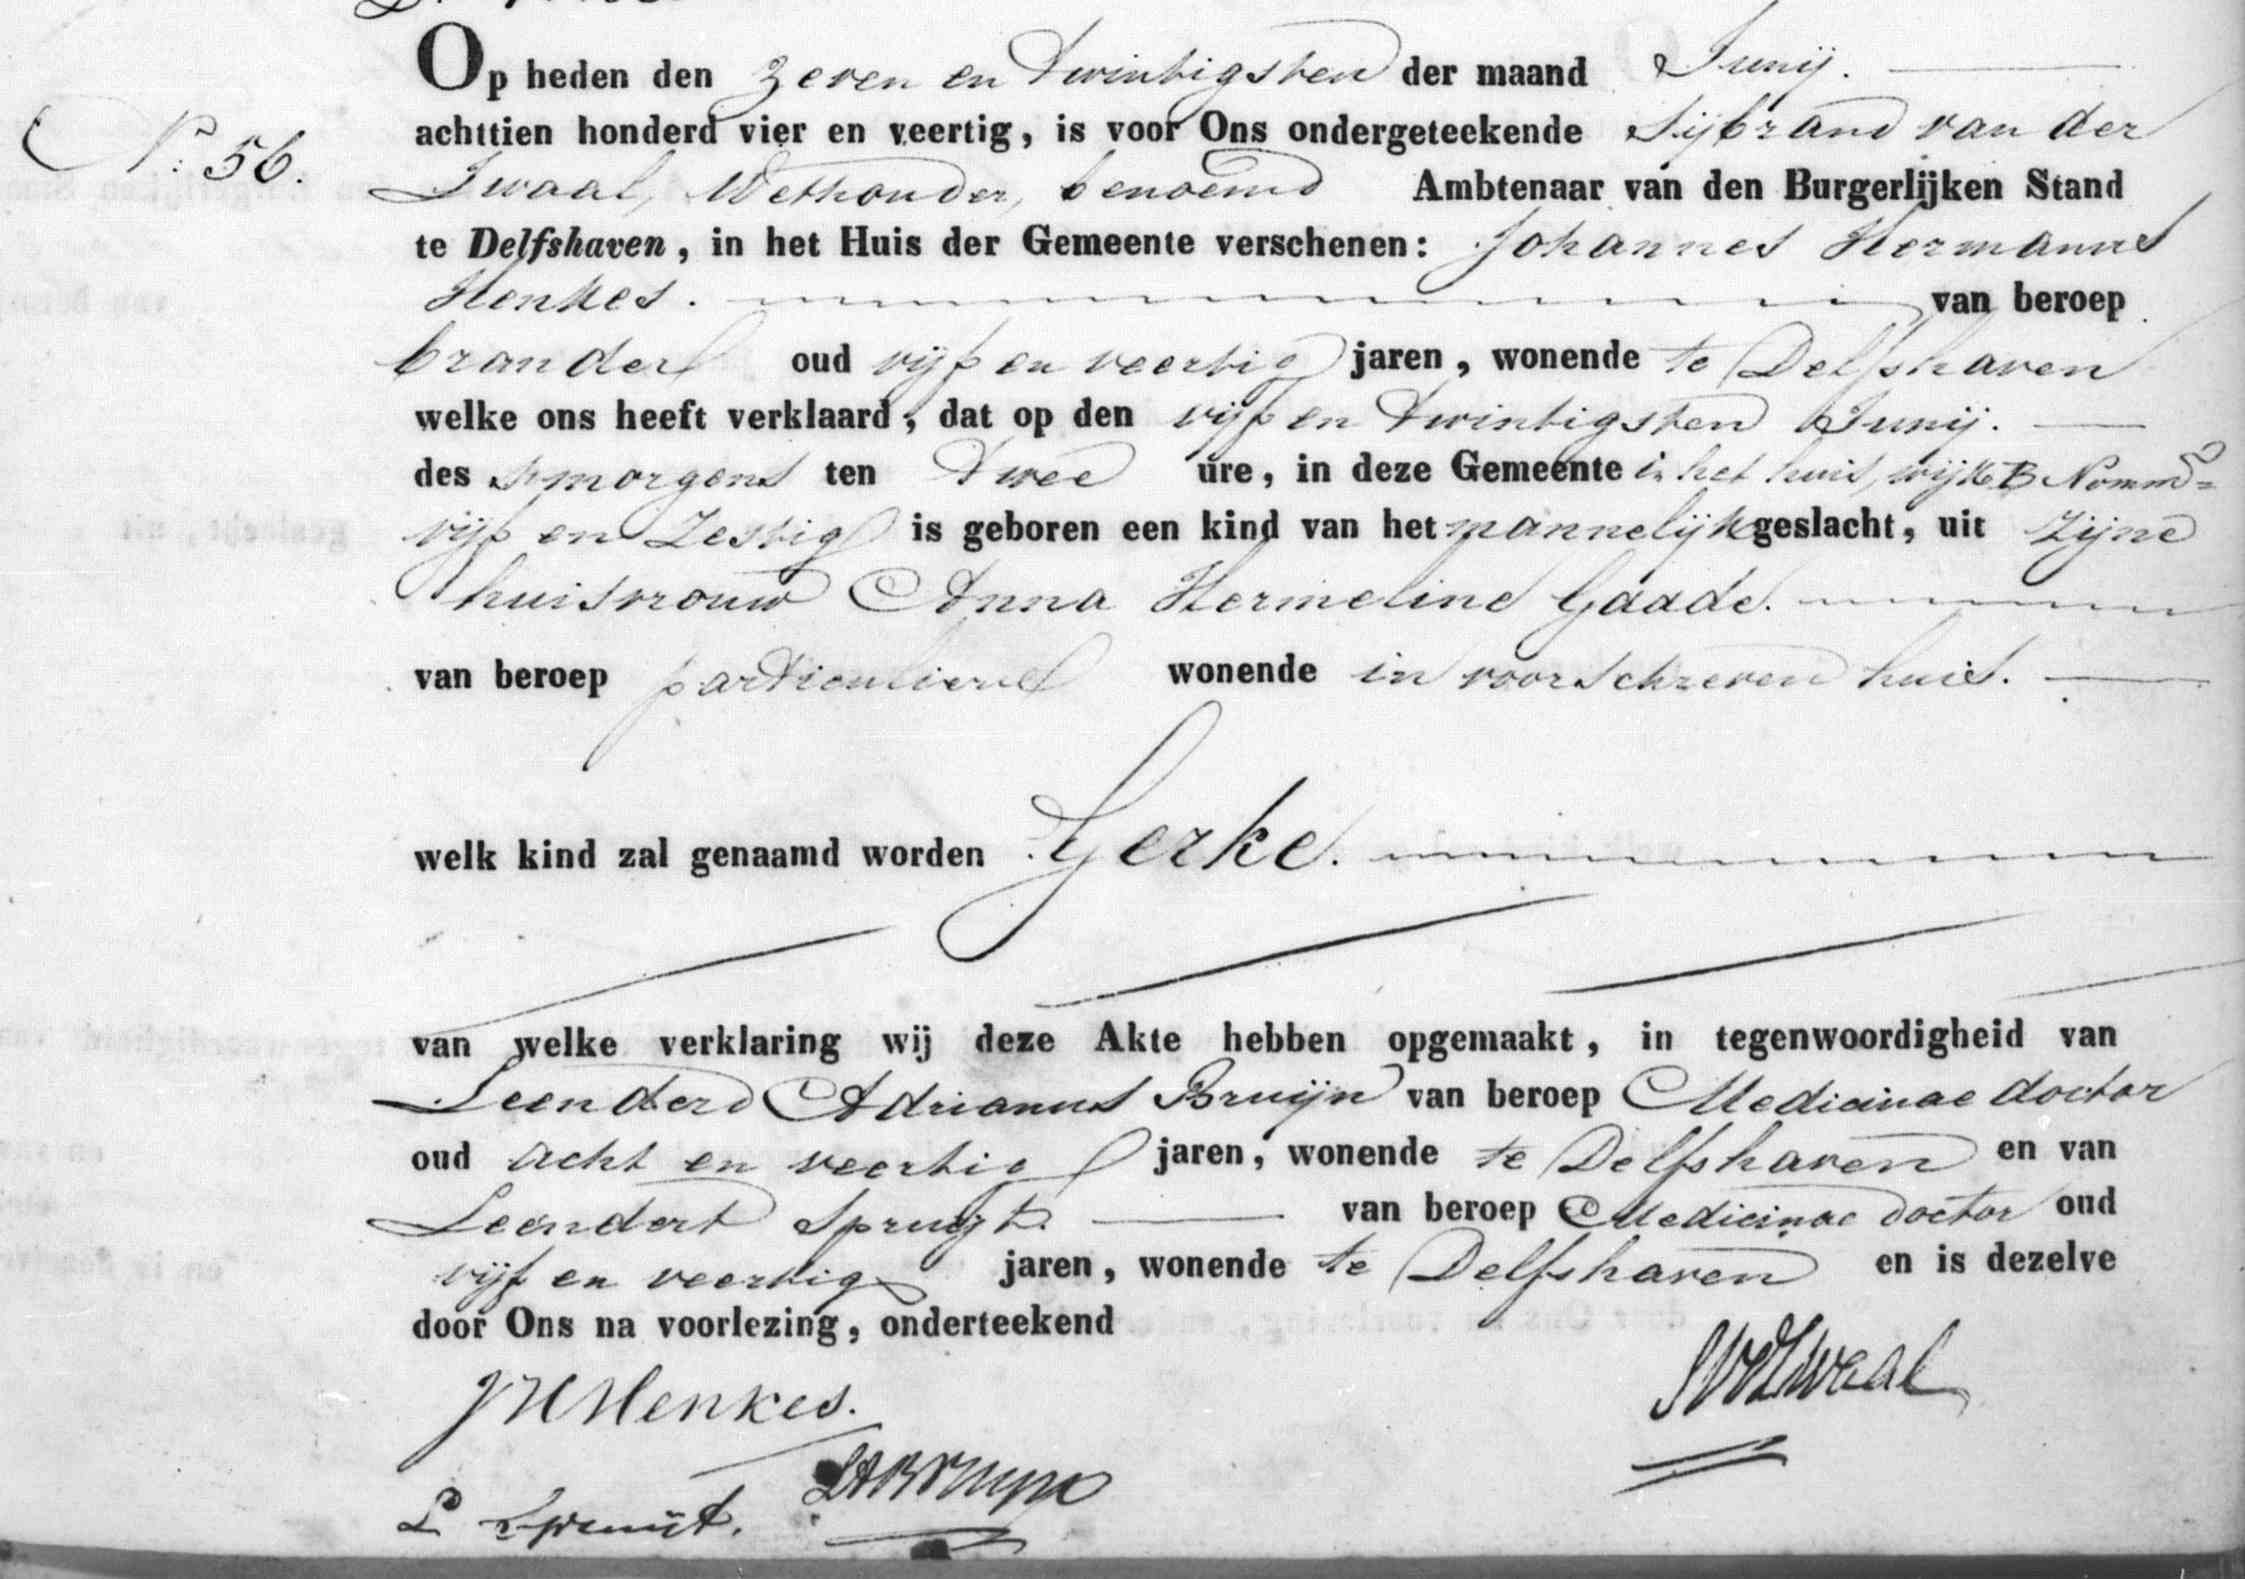 Op heden den zeven en twintigsten der maand Junij.
achttien honderd vier en veertig, is voor Ons ondergeteekende Sijbrand van der
No. 56.
Zwaal, Wethouder, benoemd Ambtenaar van den Burgerlijken Stand
te Delfshaven, in het Huis der Gemeente verschenen: Johannes Hermanus
Henkes. van beroep
brander oud vijf en veertig jaren, wonende te Delfshaven
welke ons heeft verklaard, dat op den vijf en twintigsten Junij.
des smorgens ten twee ure, in deze Gemeente in het huis, wijk B Nomm=
vijf en Zestig is geboren een kind van het mannelijk geslacht, uit zijne
huisvrouw Anna Hermeline Gaade.
van beroep particuliere wonende in voorschreven huis.
welk kind zal genaamd worden Gerke.
van welke verklaring wij deze Akte hebben opgemaakt, in tegenwoordigheid van
Leenderd Adrianus Bruijn van beroep Medicinae doctor
oud acht en veertig jaren, wonende te Delfshaven en van
Leendert Spruyt. van beroep Medicinae doctor oud
vijf en veertig jaren, wonende te Delfshaven en is dezelve
door Ons na voorlezing, onderteekend
JHHenkes.
SvdZwaal
LABruyn
L Spruijt.